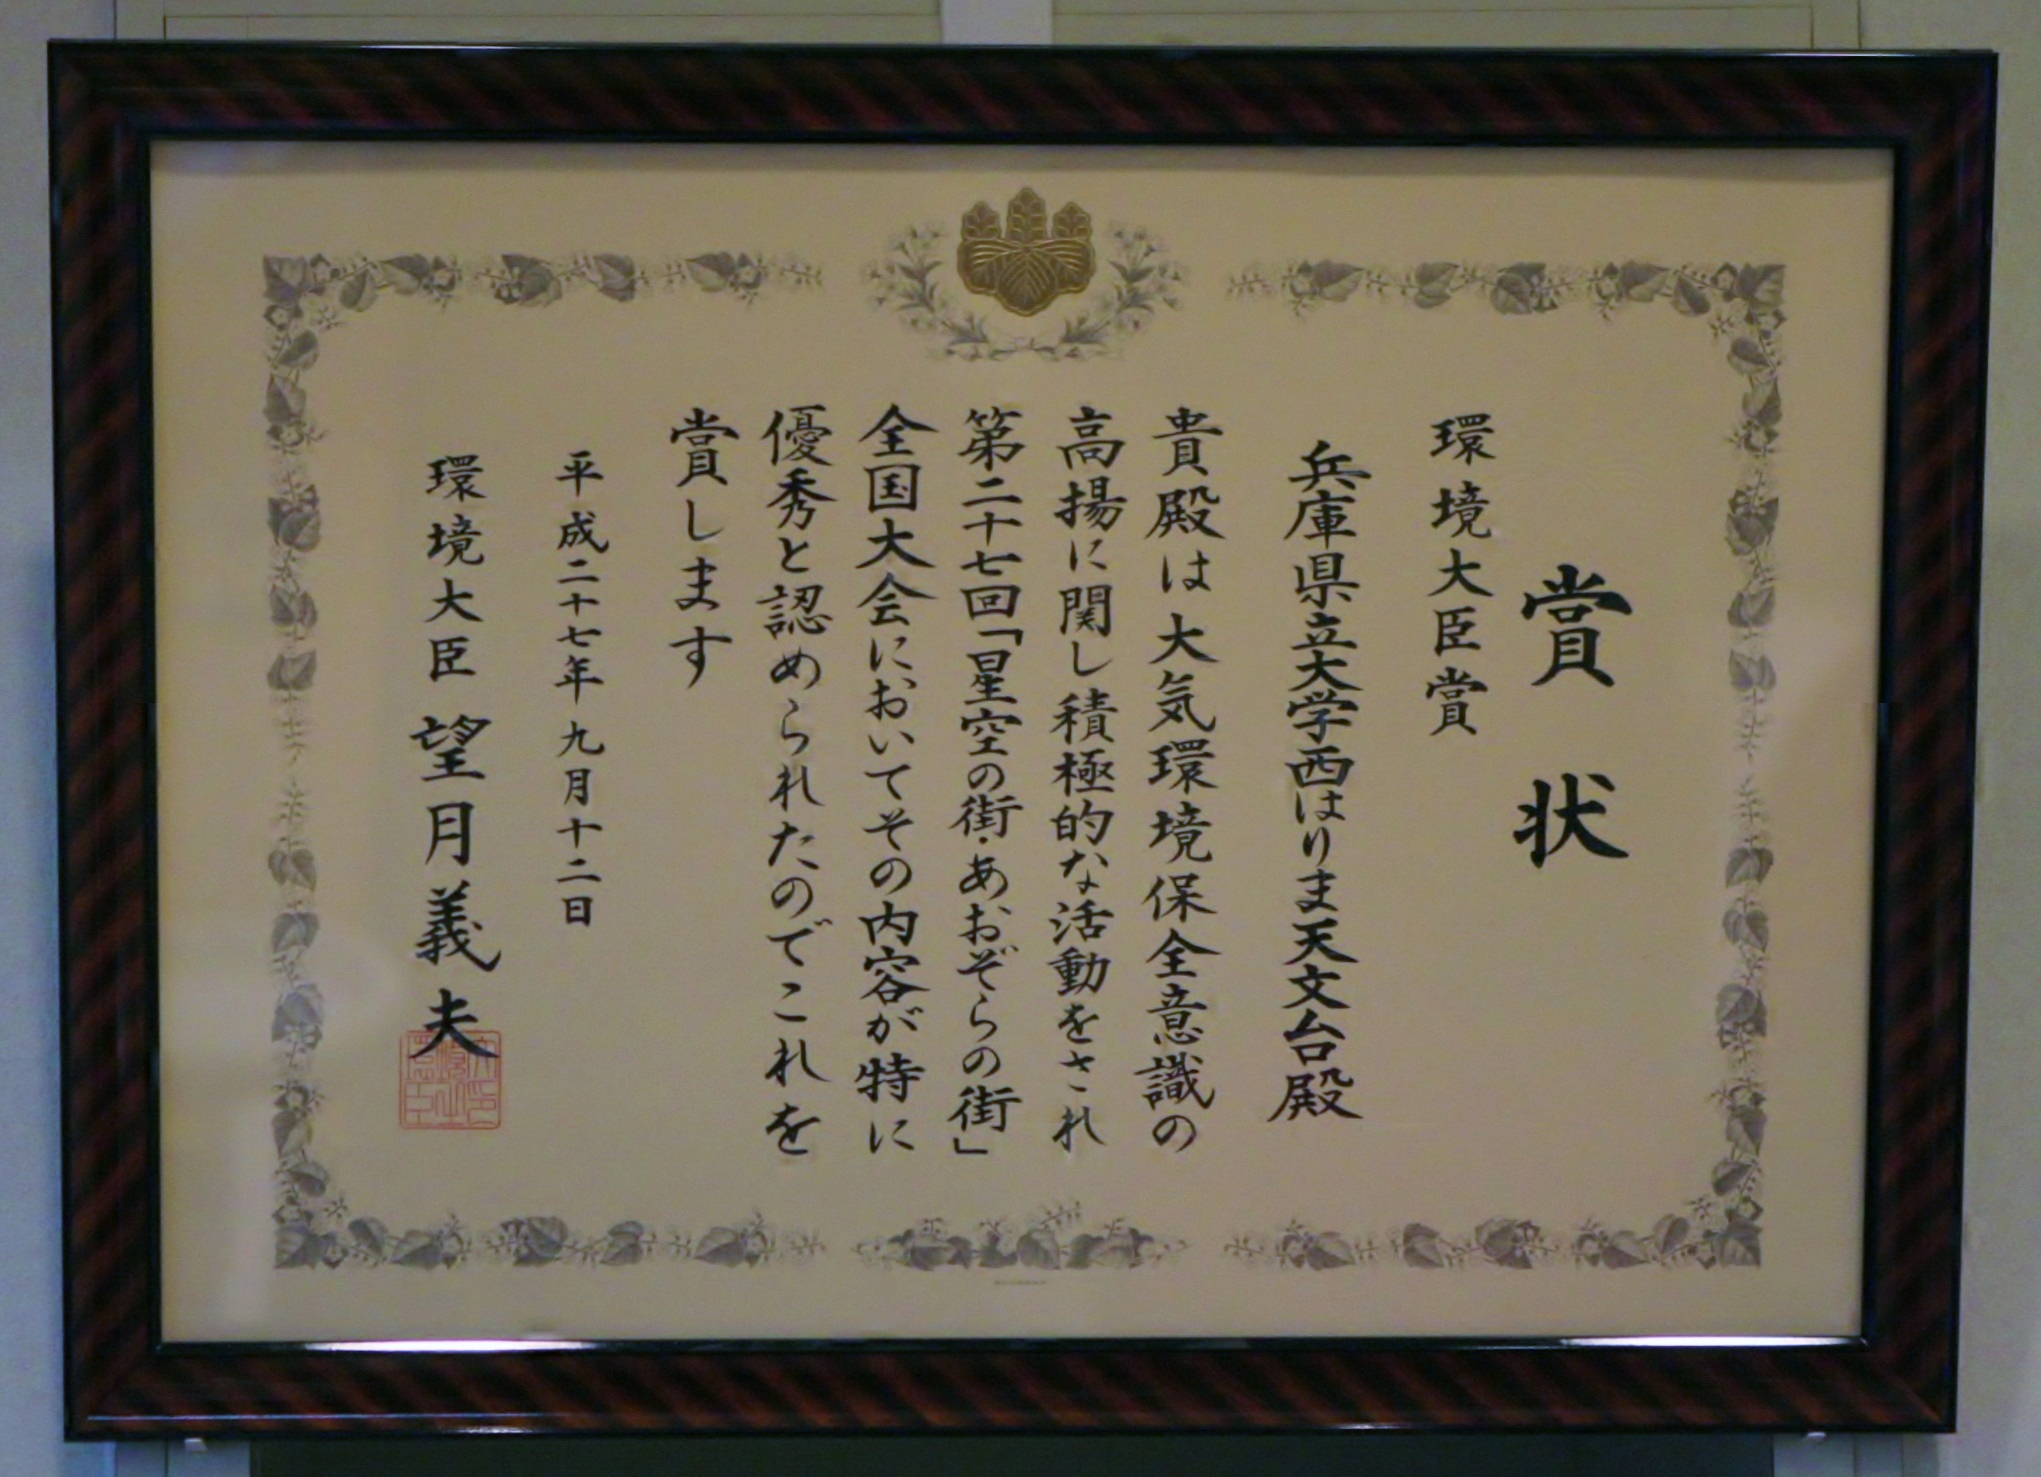 賞状
環境大臣賞
兵庫県立大学西はりま天文台殿
貴殿は大気環境保全意識の
高揚に関し積極的な活動をされ
第二十七回「星空の街・あおぞらの街」
全国大会においてその内容が特に
優秀と認められたのでこれを
賞します
平成二十七年九月十二日
環境大臣 望月義夫